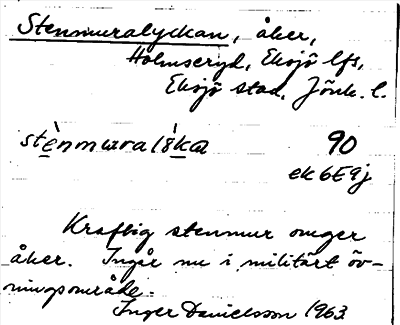 Stenmuralyckan, åker,
Holmseryd, Eksjö lfs,
Eksjö stad, Jönk. l.
90
ek 6E9j
Kraftig stenmur omger
åker. Ingår nu i militärt öv-
ningsområde.
Inger Danielsson 1963